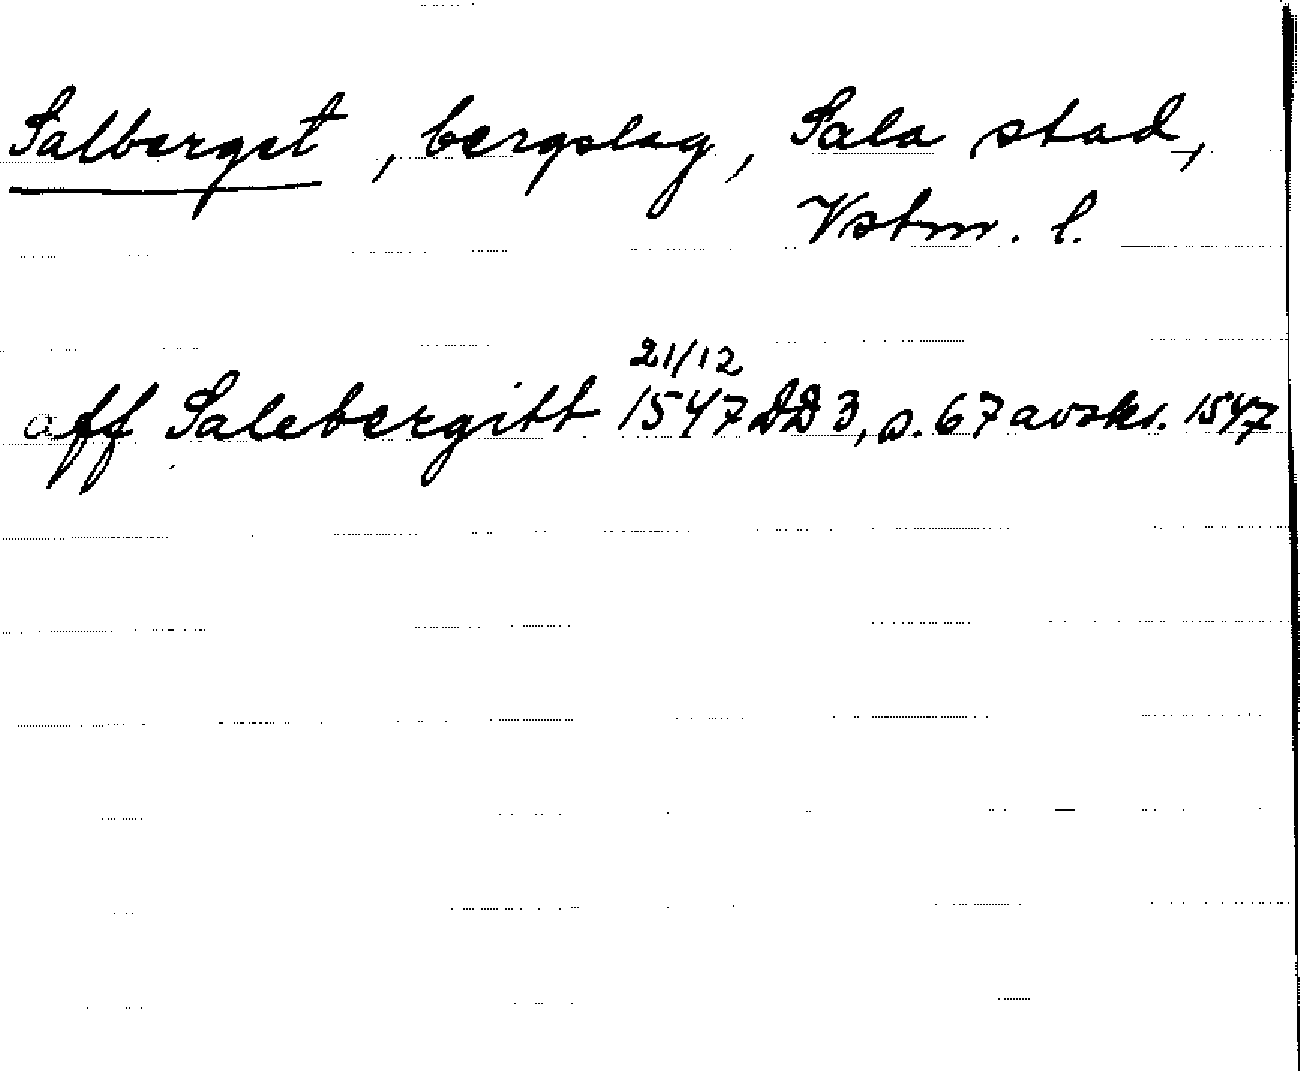 Salberget, bergslag, Sala stad,
Vstm. l.
21/12
aff Salebergitt 1547 DD 3, s. 67 avskr. 1547